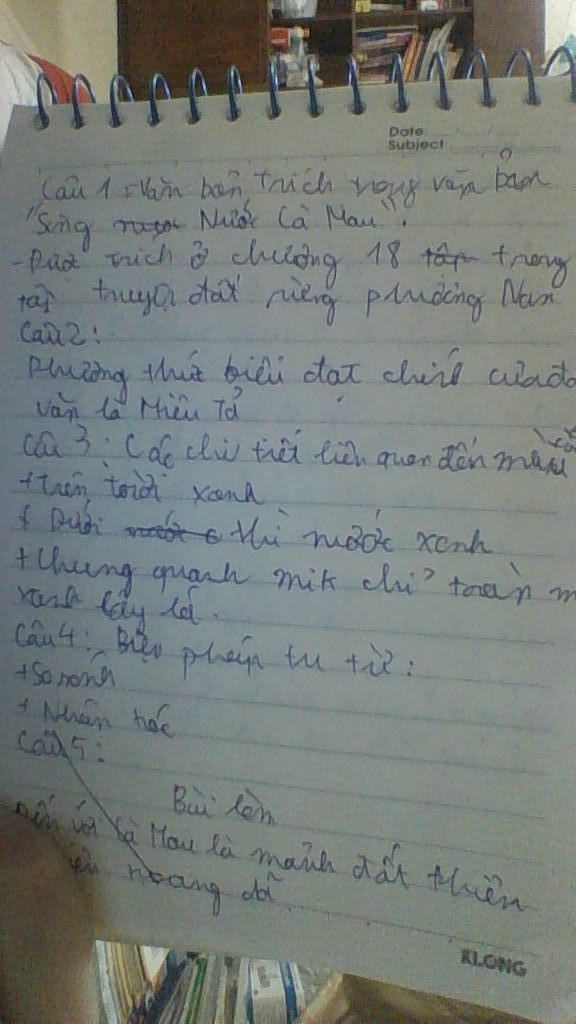 Date
Subject
Câu 1: Văn bản trích trong văn bản
"Sông Nước Cà Mau".
- Được trích ở chương 18 trong
truyện đất rừng phương Nam
Câu 2:
Phương thức biểu đạt chính của đo
văn là Miêu Tả
Câu 3: Các chi tiết liên quan đến màu
+ trên trời xanh
+ Dưới thì nước xanh
+ Chung quanh mik chỉ toàn m
xanh cây lá.
Câu 4: Biện pháp tu từ:
+ So sánh
+ Nhân hóa
Câu 5:
Bài làm
Đến với Cà Mau là mảnh đất thiên
hoang dã
KLONG